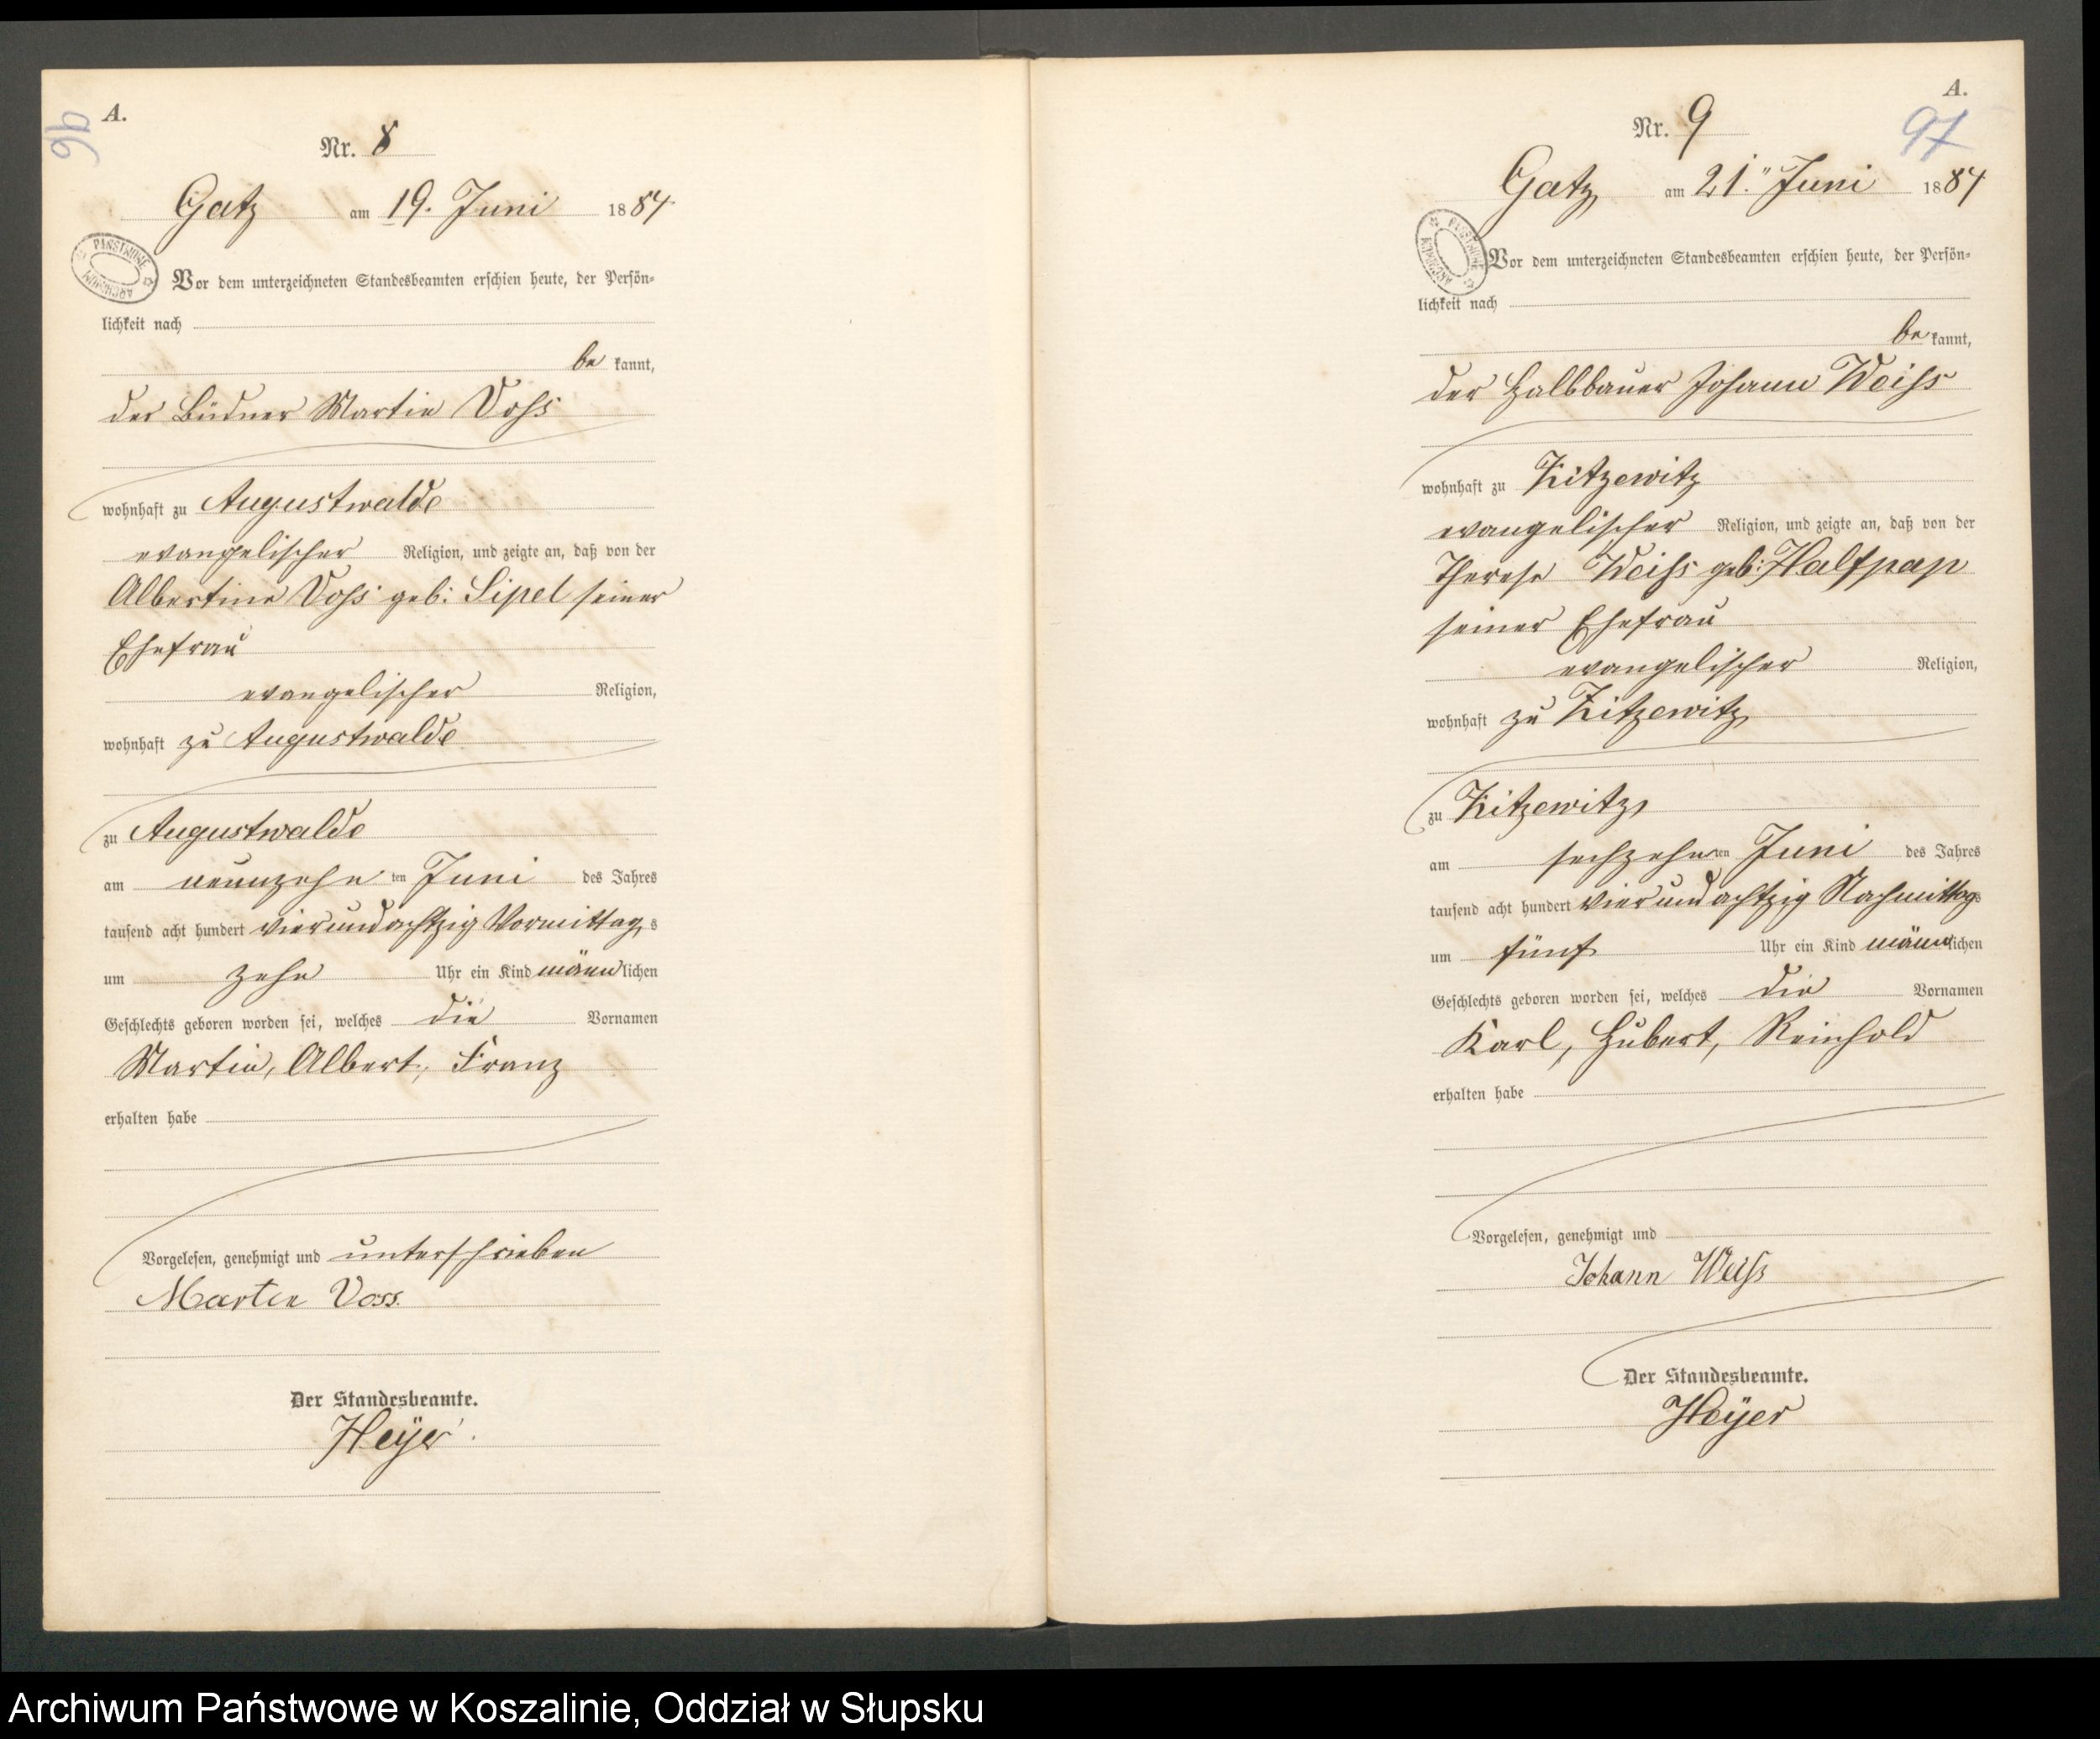 96
A.
Nr. 8
Gatz am 19. Juni 1884
PAŃSTWOWE ARCHIWUM
Vor dem unterzeichneten Standesbeamten erschien heute, der Persön-
lichkeit nach
be kannt,
der Büdner Martin Voß
wohnhaft zu Augustwalde
evangelischer Religion, und zeigte an, daß von der
Albertine Voß geb: Sipel seiner
Ehefrau
evangelischer Religion,
wohnhaft zu Augustwalde
zu Augustwalde
am neunzehn ten Juni des Jahres
tausend acht hundert vierundachtzig Vormittag s
um zehn Uhr ein Kind männ lichen
Geschlechts geboren worden sei, welches die Vornamen
Martin, Albert, Franz
erhalten habe
Vorgelesen, genehmigt und unterschrieben
Martin Voss.
Der Standesbeamte.
Heÿer.
A.
97
Nr. 9
Gatz am 21. Juni 1884
PAŃSTWOWE ARCHIWUM
Vor dem unterzeichneten Standesbeamten erschien heute, der Persön-
lichkeit nach
be kannt,
der Halbbauer Johann Weiß
wohnhaft zu Kitzewitz
evangelischer Religion, und zeigte an, daß von der
Therese Weiß geb: Halfpap
seiner Ehefrau
evangelischer Religion,
wohnhaft zu Kitzewitz
zu Kitzewitz,
am sechzehn ten Juni des Jahres
tausend acht hundert vierundachtzig Nachmittag s
um fünf Uhr ein Kind männlichen
Geschlechts geboren worden sei, welches die Vornamen
Karl, Hubert, Reinhold
erhalten habe
Vorgelesen, genehmigt und
Johann Weiß
Der Standesbeamte.
Heÿer
Archiwum Państwowe w Koszalinie, Oddział w Słupsku